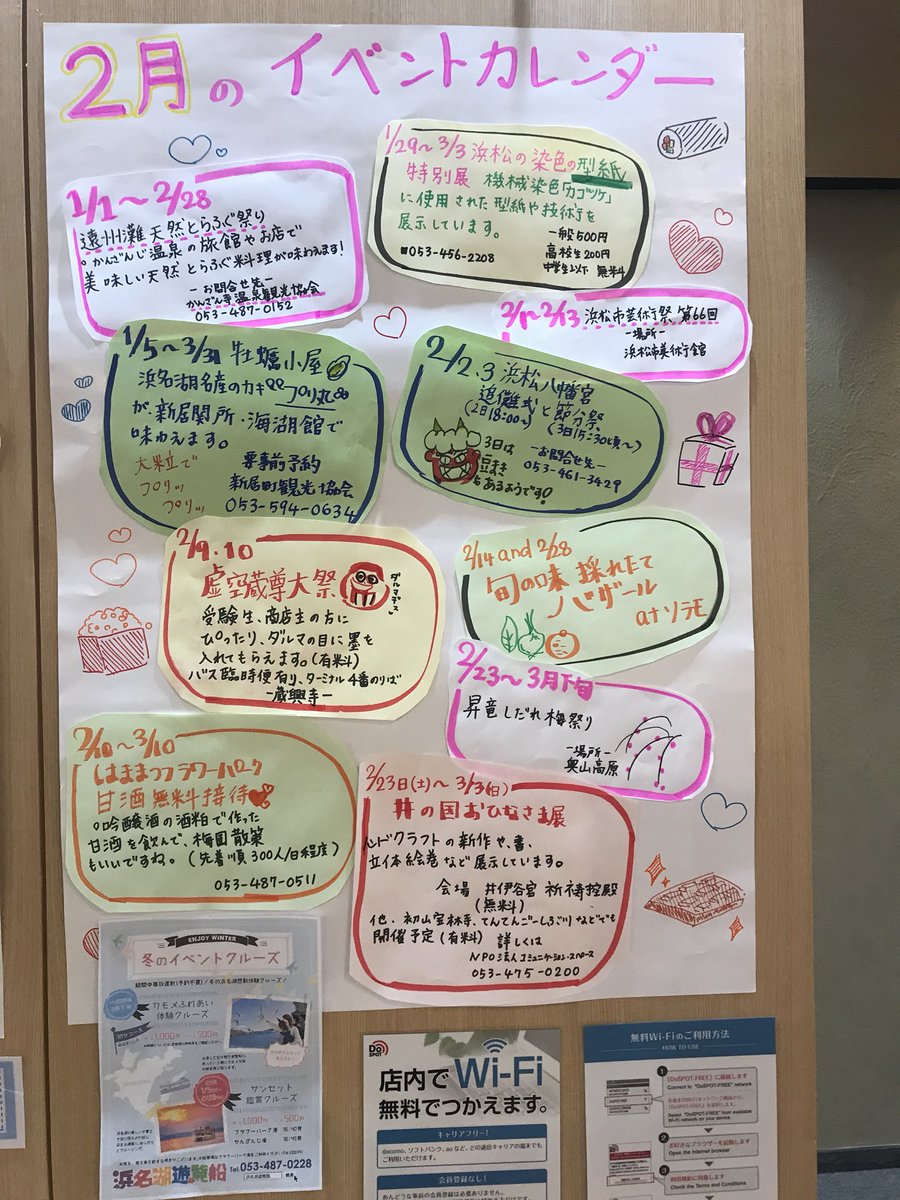 2月のイベントカレンダー
1/29〜3/3 浜松の染色の型紙
特別展 機械染色「カゴツケ」
に使用された型紙や技術を
展示しています。
一般500円
高校生200円
中学生以下 無料
☎053-456-2208
1/1〜2/28
遠州灘天然とらふぐ祭り
。かんざんじ温泉の旅館やお店で
美味しい天然とらふぐ料理が味わえます!
-お問合せ先-
かんざん寺温泉観光協会
053-487-0152
2/13 浜松市芸術祭 第66回
-場所-
浜松市美術館
1/5〜3/31 牡蠣小屋
浜名湖名産のカキ
プリ丸
が、新居関所・海湖館で
味わえます。
大粒で
プリッ
プリッ
要事前予約
新居町観光協会
053-594-0634
2/2.3 浜松八幡宮
追儺式と節分祭
(2日18:00〜)
(3日15:30頃〜)
3日は
豆まき
もあるようです!
-お問合せ先-
053-461-3429
2/9.10
虚空蔵尊大祭
ダルマデス。
受験生、商店主の方に
ぴったり、ダルマの目に墨を
入れてもらえます。(有料)
バス臨時便有り、ターミナル4番のりば
-蔵興寺-
2/14 and 2/28
旬の味 採れたて
バザール
at ソラモ
2/23〜3月下旬
昇竜しだれ梅祭り
-場所-
奥山高原
2/10〜3/10
はままつフラワーパーク
甘酒無料接待
。吟醸酒の酒粕で作った
甘酒を飲んで、梅園散策
もいいですね。(先着順300人/日程度)
053-487-0511
2/23日(土)〜3/3(日)
井の国おひなさま展
ハンドクラフトの新作や、書、
立体絵巻など展示しています。
会場 井伊谷宮 祈祷控殿
(無料)
他、初山宝林寺、てんてんごーしぶ川などでも
開催予定(有料) 詳しくは
NPO法人コミュニケーション・スペース
053-475-0200
ENJOY WINTER
冬のイベントクルーズ
期間中毎日運航(予約不要)/冬の浜名湖感動体験クルーズ/
カモメふれあい
体験クルーズ
サンセット
鑑賞クルーズ
フラワーパーク港
かんざんじ港
浜名湖遊覧船
Tel.053-487-0228
DoSPOT
Wi-Fi
店内で
無料でつかえます。
キャリアフリー!
docomo、ソフトバンク、auなど、どの通信キャリアの端末でも
ご利用いただけます。
会員登録なし!
めんどうな事前の会員登録は必要ありません。
無料Wi-Fiのご利用方法
HOW TO USE
1
「DoSPOT-FREE」に接続します
Connect to "DoSPOT-FREE" network
Select "DoSPOT-FREE" from available
Wi-Fi network on your device.
2
お好きなブラウザーを起動します
Open the Internet browser
3
利用規約に同意します
Check the Terms and Conditions